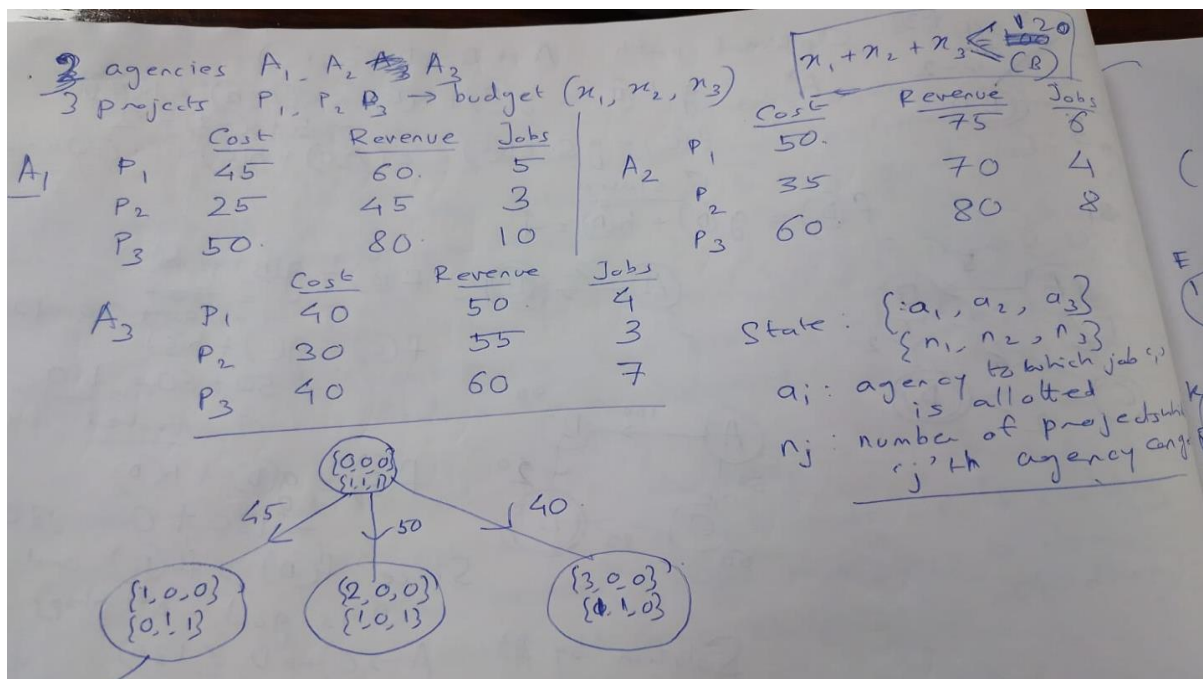 3 agencies A1, A2 A3
3 projects P1, P2 P3 → budget (x1, x2, x3)
x1 + x2 + x3 <= 120
(B)
Cost Revenue Jobs
A1 P1 45 60. 5
P2 25 45 3
P3 50. 80. 10
Cost Revenue Jobs
A2 P1 50. 75 6
P2 35 70 4
P3 60 80 8
Cost Revenue Jobs
A3 P1 40 50. 4
P2 30 55 3
P3 40 60 7
State : {a1, a2, a3}
{n1, n2, n3}
aj : agency to which job 'j'
is allotted
nj : number of projects
'j'th agency
{0,0,0}
{1,1,1}
45 50 40
{1,0,0}
{0,1,1}
{2,0,0}
{1,0,1}
{3,0,0}
{1,1,0}